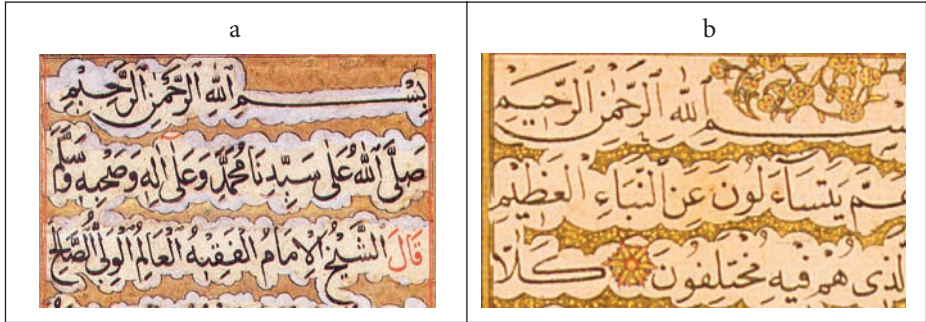 a
بِسْمِ اللّٰهِ الرَّحْمٰنِ الرَّحِيْمِ
صَلَّى اللّٰهُ عَلٰى سَيِّدِنَا مُحَمَّدٍ وَعَلٰى اٰلِهِ وَصَحْبِهِ وَسَلَّمَ
قَالَ الشَّيْخُ الْاِمَامُ الْفَقِيْهُ الْعَالِمُ الْوَلِيُّ الصَّالِحُ
b
بِسْمِ اللّٰهِ الرَّحْمٰنِ الرَّحِيْمِ
عَمَّ يَتَسَآءَلُونَ عَنِ النَّبَاءِ الْعَظِيْمِ
الَّذِى هُمْ فِيهِ مُخْتَلِفُونَ كَلَّا